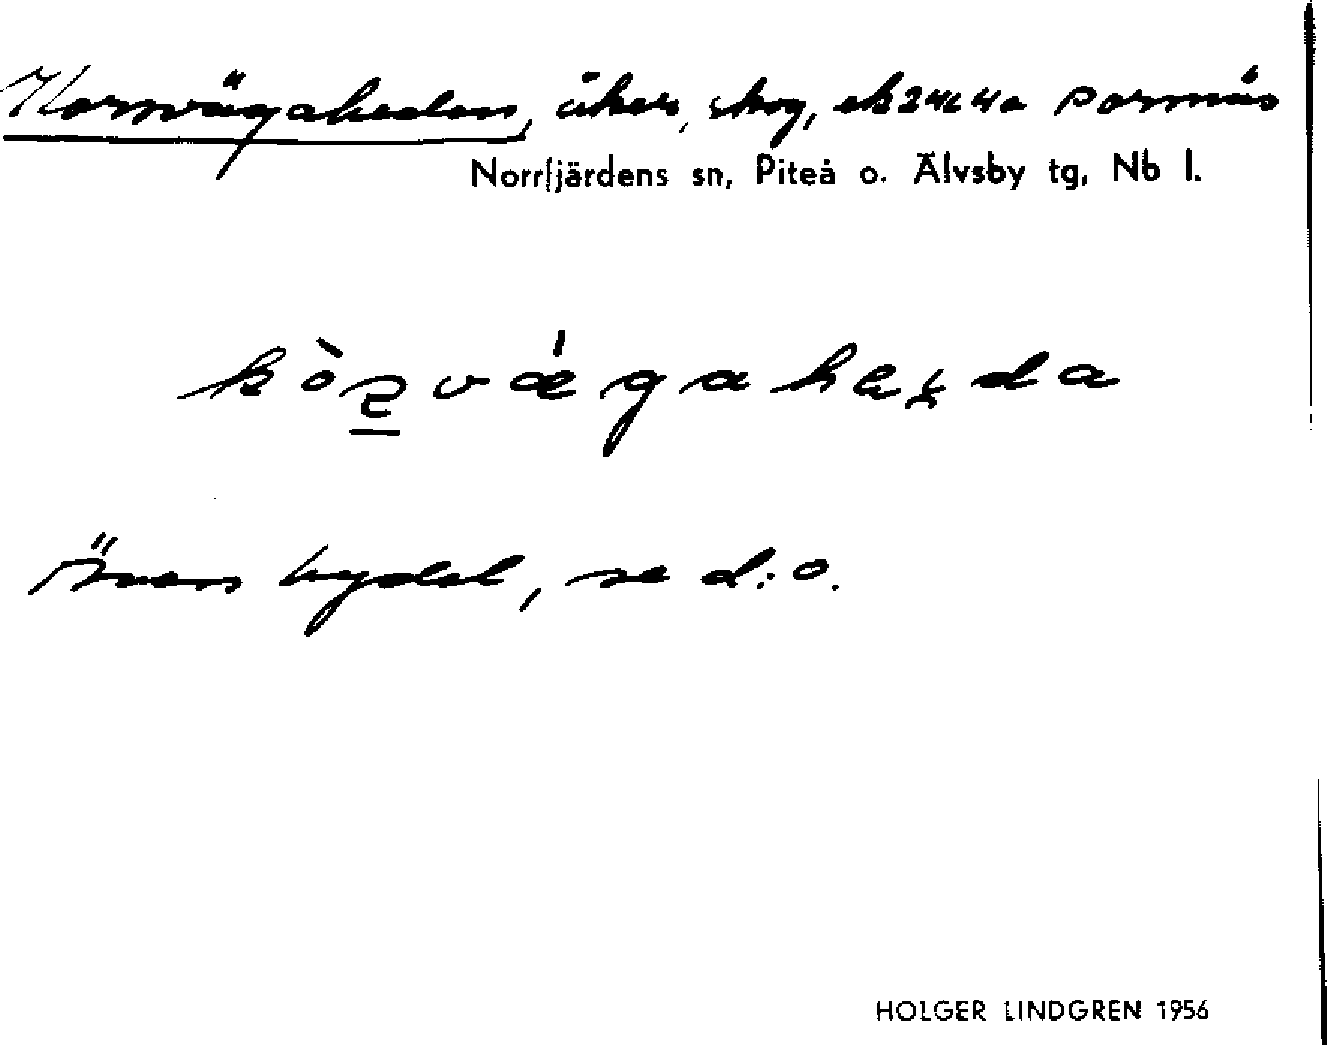 Korsvägahedan, åker, skog, ek 24L4a Porsnäs
Norrfjärdens sn, Piteå o. Älvsby tg, Nb l.
Övan bydel, se d:o.
HOLGER LINDGREN 1956